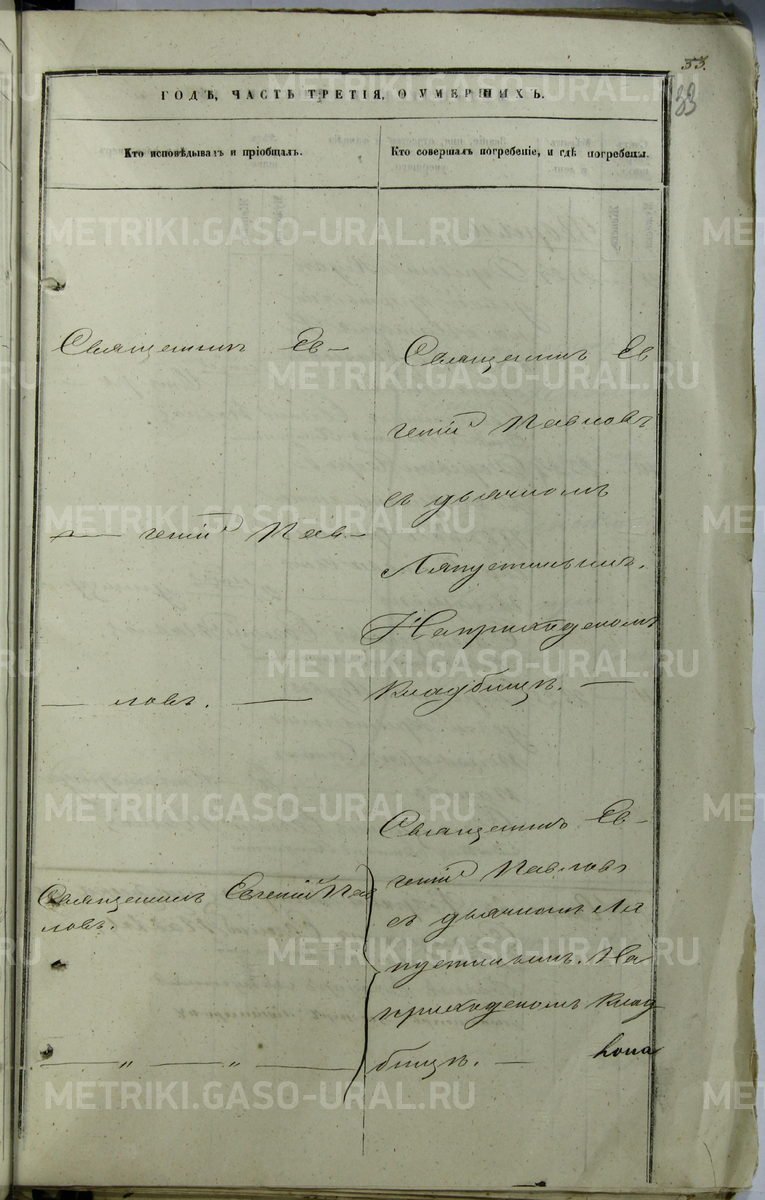 53.
33
ГОДѢ, ЧАСТЬ ТРЕТІЯ, О УМЕРШИХЪ.
Кто исповѣдывалъ и пріобщалъ.
Кто совершалъ погребеніе, и гдѣ погребены.
Священникъ Ев-
геній Пав-
ловъ.
Священникъ Евгеній Пав
ловъ.
" "
Священникъ Ев
геній Павловъ
съ дьячкомъ
Ляпустинымъ.
На приходскомъ
кладбищѣ.
Священникъ Ев-
геній Павловъ
съ дьячкомъ Ля
пустинымъ. На
приходскомъ клад
бищѣ.
METRIKI.GASO-URAL.RU